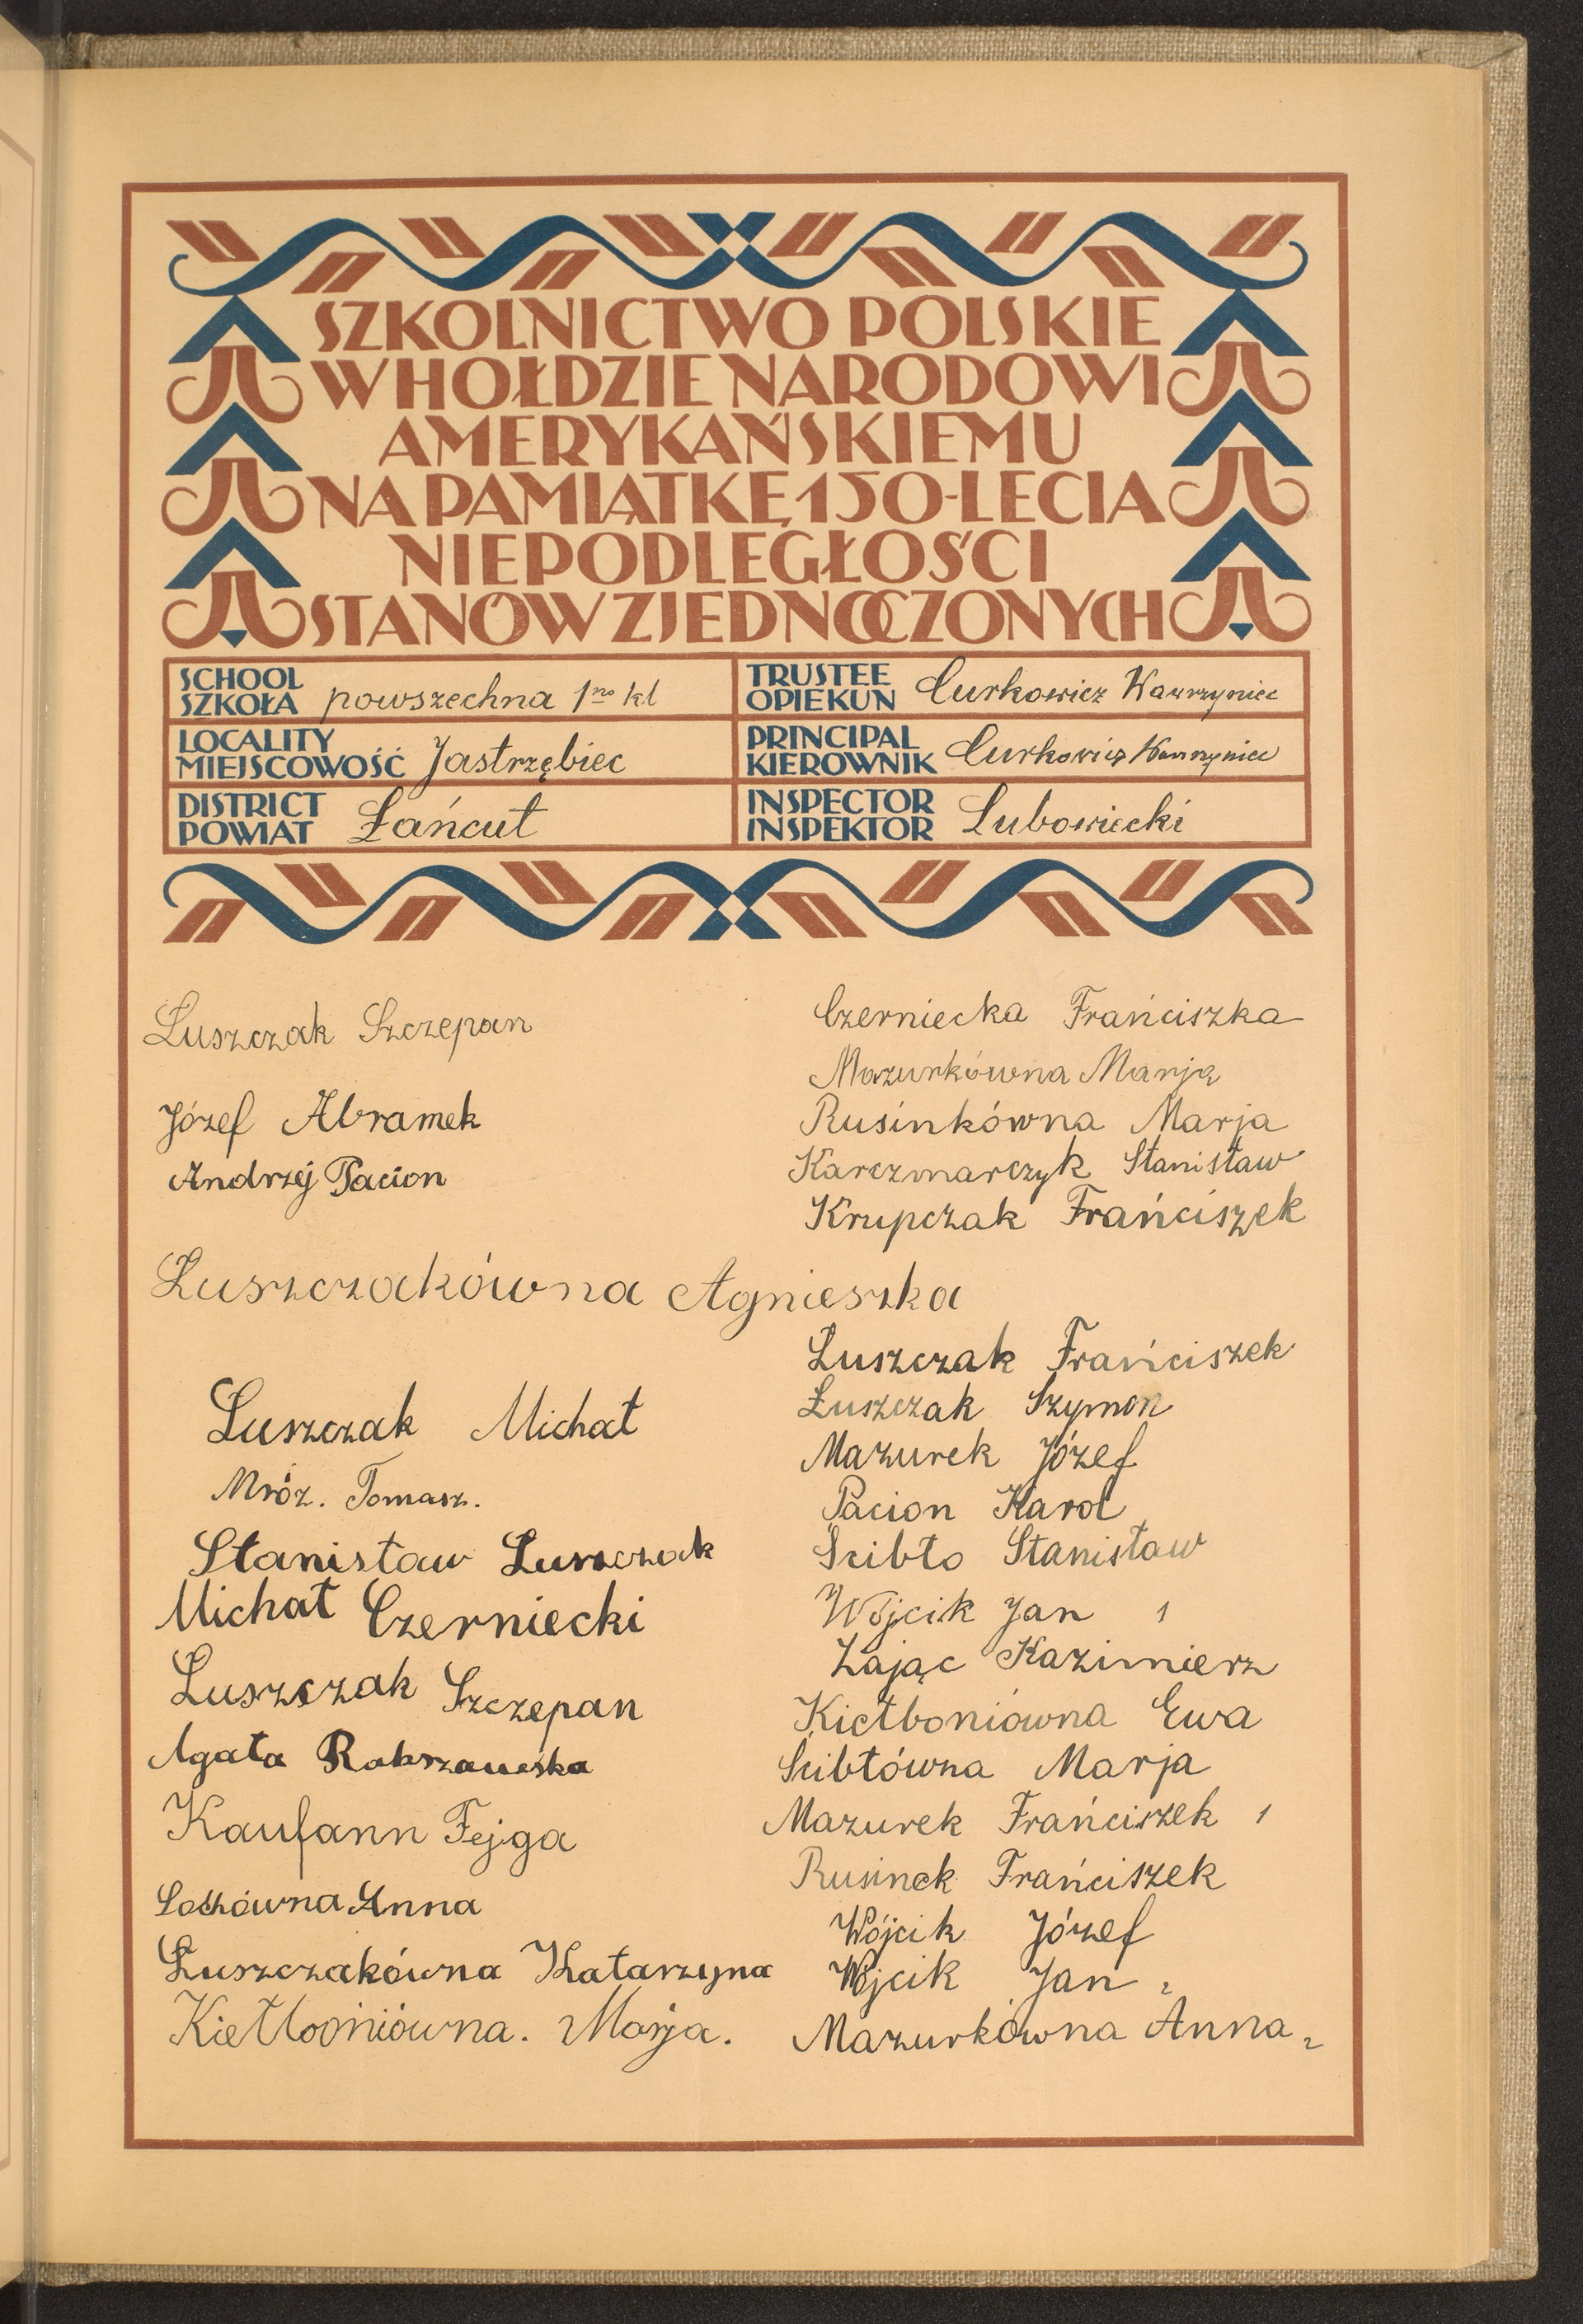 SZKOLNICTWO POLSKIE
W HOŁDZIE NARODOWI
AMERYKAŃSKIEMU
NA PAMIĄTKĘ 150-LECIA
NIEPODLEGŁOŚCI
STANÓW ZJEDNOCZONYCH
SCHOOL
SZKOŁA powszechna 1no kl
TRUSTEE
OPIEKUN Curkowicz Wawrzyniec
LOCALITY
MIEJSCOWOŚĆ Jastrzębiec
PRINCIPAL
KIEROWNIK Curkowicz Wawrzyniec
DISTRICT
POWIAT Łańcut
INSPECTOR
INSPEKTOR Lubowiecki
Łuszczak Szczepan
Józef Abramek
Andrzej Pacion
Łuszczakówna Agnieszka
Łuszczak Michał
Mróz. Tomasz.
Stanisław Łuszczak
Michał Czerniecki
Łuszczak Szczepan
Agata
Kaufann Fejga
Anna
Łuszczakówna Katarzyna
Kiełboniówna. Marja.
Czerniecka Frańciszka
Mazurkówna Marja
Rusinkówna Marja
Karczmarczyk Stanisław
Krupczak Frańciszek
Łuszczak Frańciszek
Łuszczak Szymon
Mazurek Józef
Pacion Karol
Ścibło Stanisław
Wójcik Jan 1
Zając Kazimierz
Kiełboniówna Ewa
Ścibłówna Marja
Mazurek Frańciszek 1
Rusinek Frańciszek
Wójcik Józef
Wójcik Jan 2
Mazurkówna Anna 2